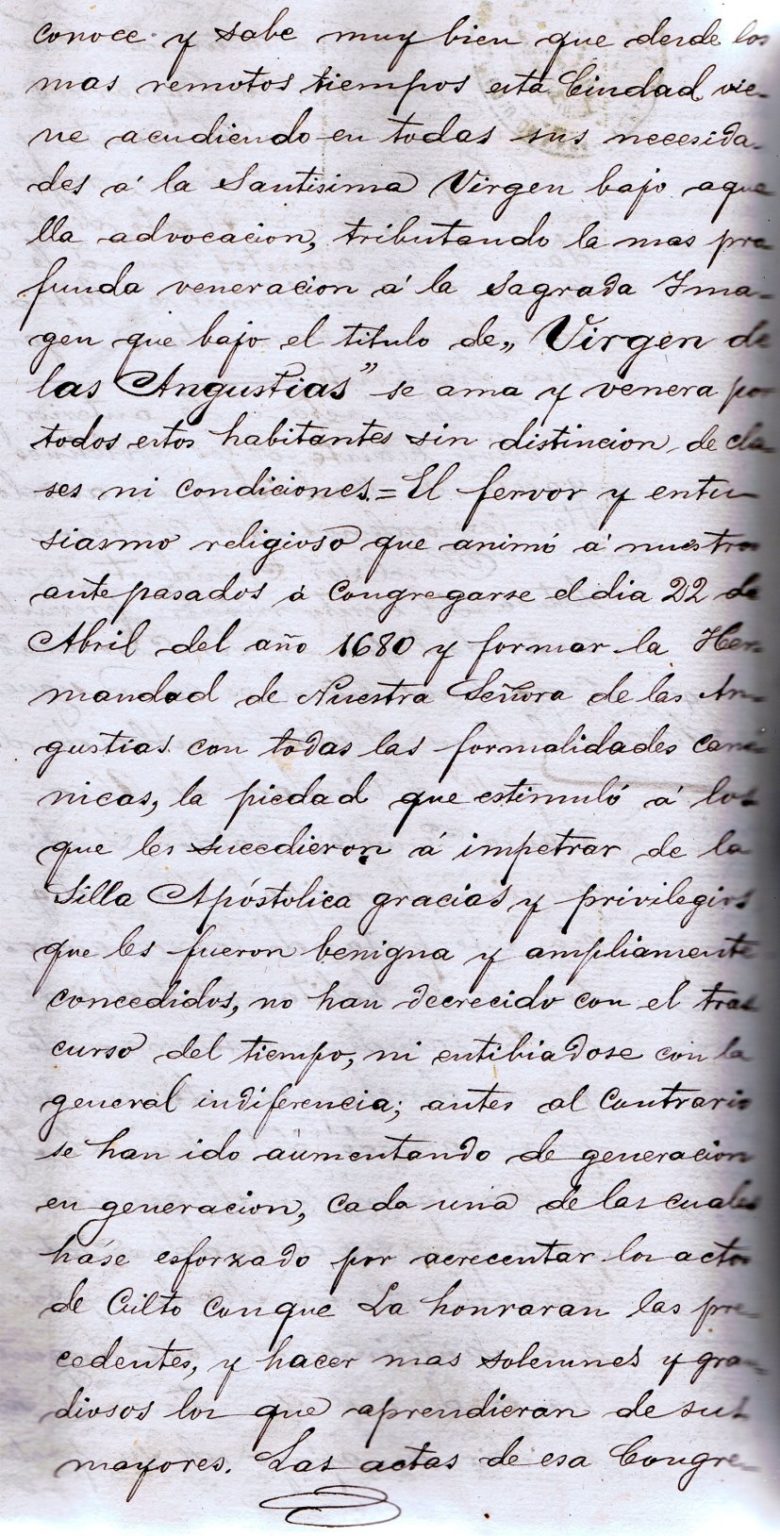 conoce y sabe muy bien que desde los
mas remotos tiempos esta Ciudad vie-
ne acudiendo en todas sus necesida-
des á la Santisima Virgen bajo aque
lla advocacion, tributando la mas pro
funda veneracion á la Sagrada Ima-
gen que bajo el titulo de „Virgen de
las Angustias” se ama y venera por
todos estos habitantes sin distincion de cla-
ses ni condiciones.=El fervor y entu-
siasmo religioso que animó á nuestros
antepasados á congregarse el dia 22 de
Abril del año 1680 y formar la Her-
mandad de Nuestra Señora de las An-
gustias con todas las formalidades cano-
nicas, la piedad que estimuló á los
que les sucedieron á impetrar de la
Silla Apóstolica gracias y privilegios
que les fueron benigna y ampliamente
concedidos, no han decrecido con el tras
curso del tiempo, ni entibiadose con la
general indiferencia; antes al contrario
se han ido aumentando de generacion
en generacion, cada una de las cuales
háse esforzado por acrecentar los actos
de Culto con que La honraran las pre-
cedentes, y hacer mas solemnes y gran-
diosos los que aprendieran de sus
mayores. Las actas de esa Congre-